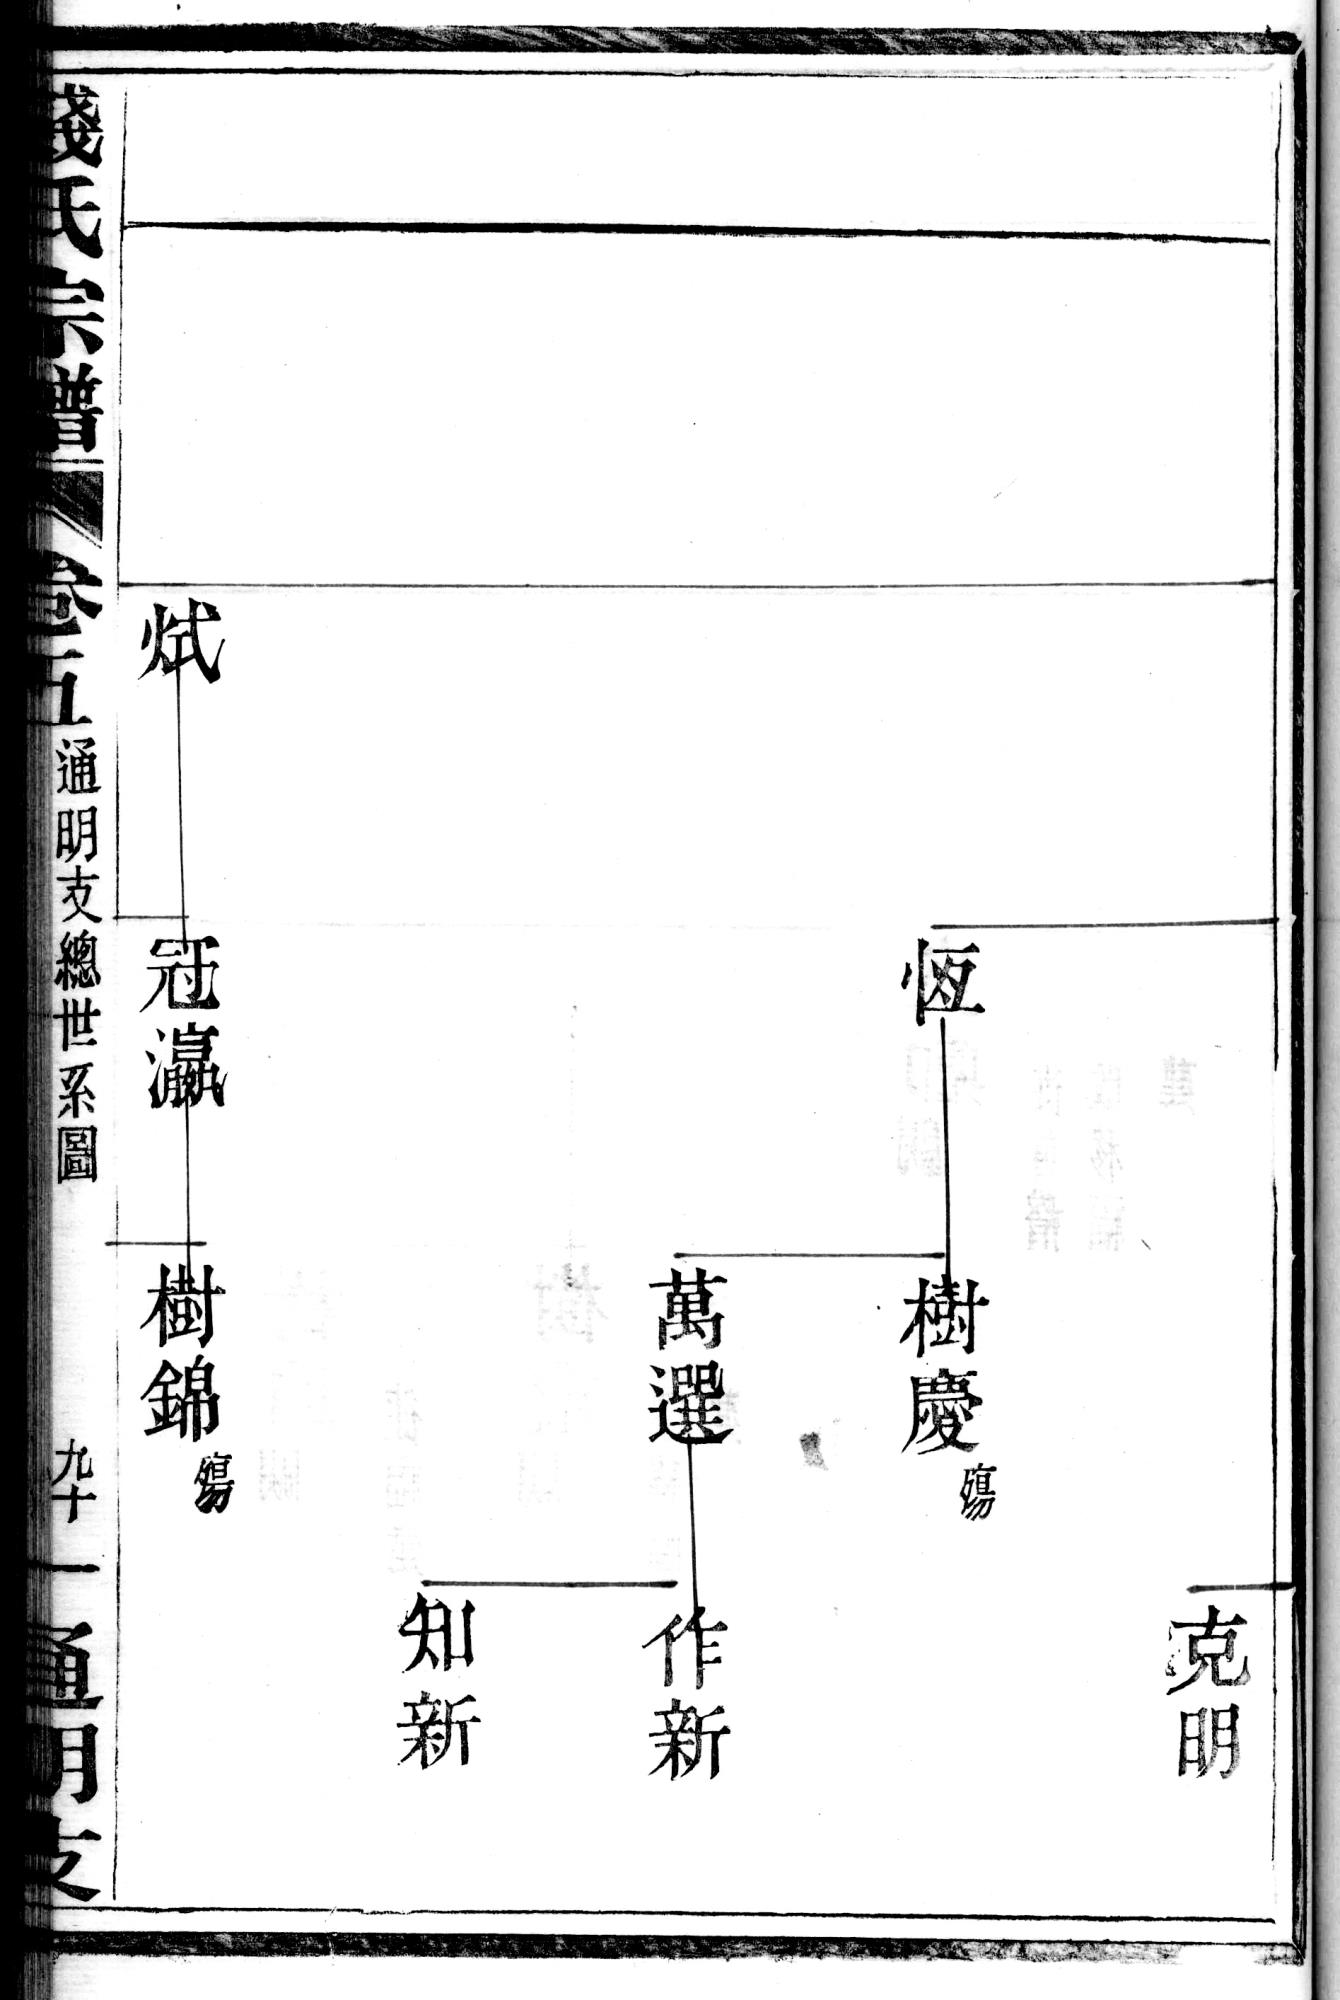 克明
恆
樹慶
殤
萬選
作新
知新
烒
冠瀛
樹錦
殤
錢氏宗譜
卷五
通明支總世系圖
九十一
通明支